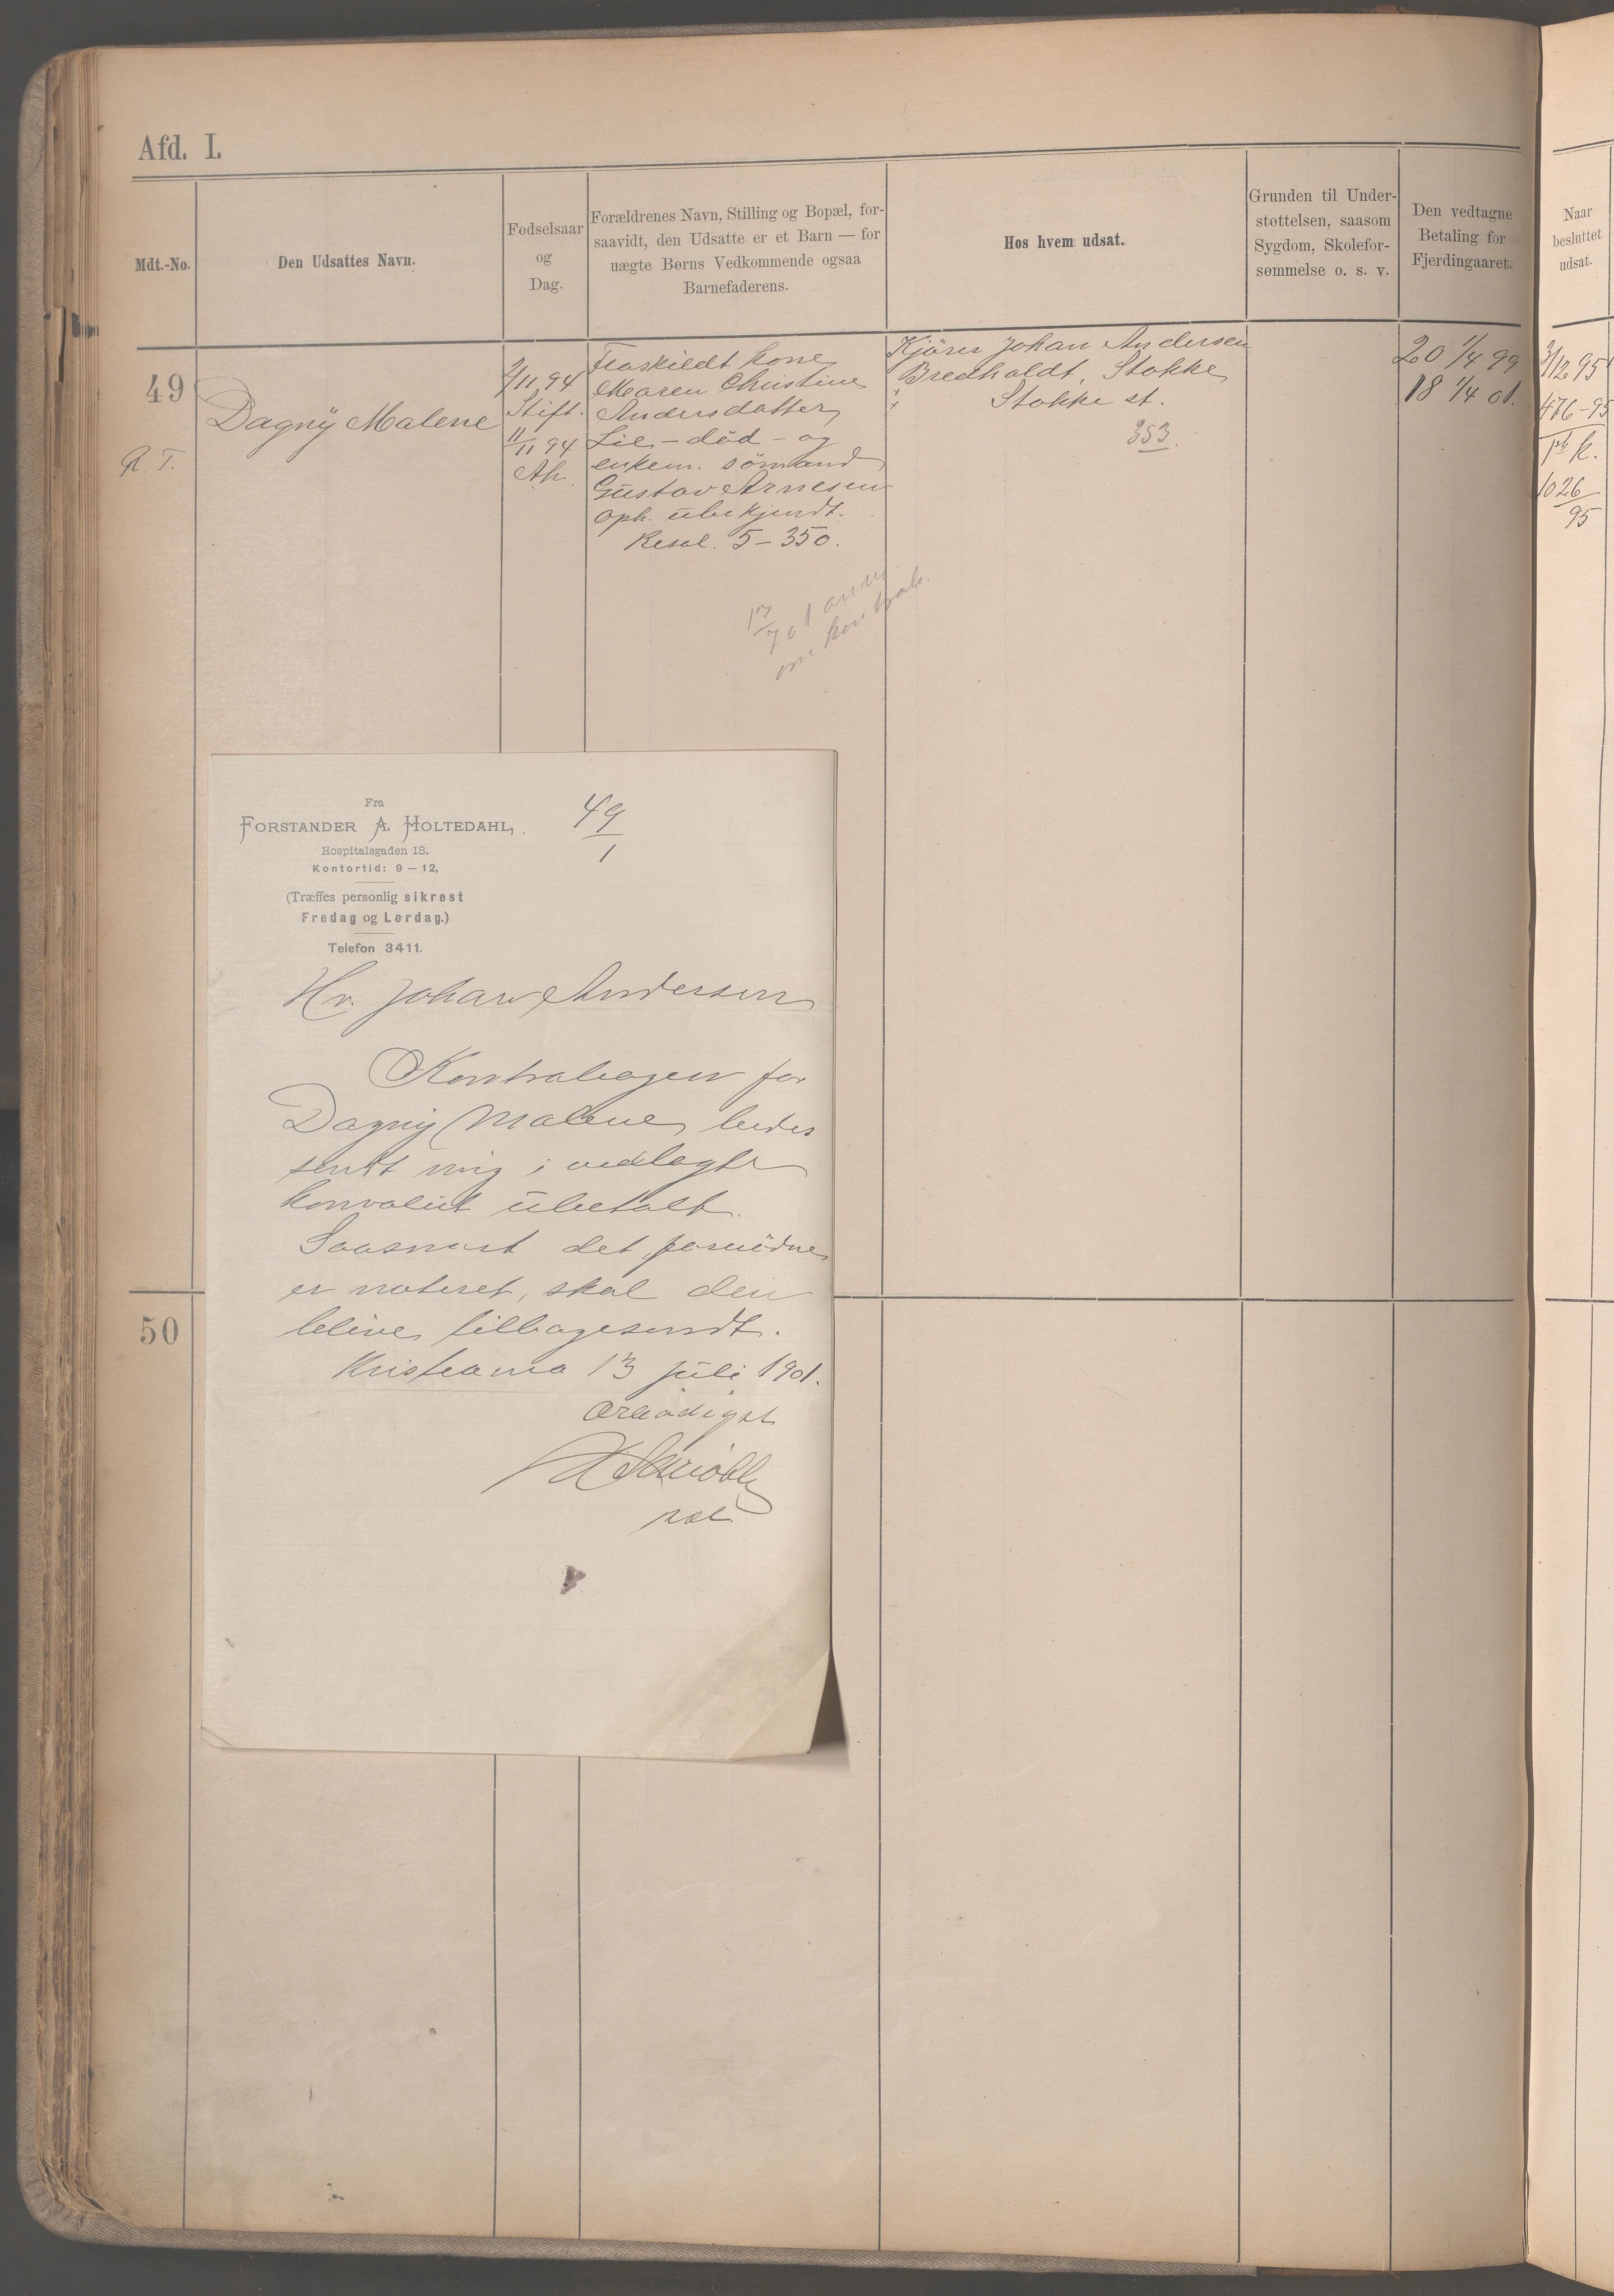 Afd. I.
Mdt.-No.
Den Udsattes Navn.
Fødselsaar
og
Dag.
Forældrenes Navn, Stilling og Bopæl, for-
saavidt, den Udsatte er et Barn — for
uægte Børns Vedkommende ogsaa
Barnefaderens.
Hos hvem udsat.
Grunden til Under-
støttelsen, saasom
Sygdom, Skolefor-
sømmelse o. s. v.
Den vedtagne
Betaling for
Fjerdingaaret.
Naar
besluttet
udsat.
49
R. T.
Dagny Malene
2/11 94
Stift.
11/11 94
Ak.
Fraskildt kone
Maren Christine
Andersdatter
Lie - död - og
enkem. sömand
Gustav Arnesen
oph. ubekjendt.
Resol. 5-350.
Kjörer Johan Andersen
Bredholdt, Stokke
Stokke st.
353.
20 1/4 99
18 1/4 01.
3/12 95
476-95
1026/95
13/7 01 anm.
om kontrab.
Fra
FORSTANDER A. HOLTEDAHL,
Hospitalsgaden 18.
Kontortid: 9 – 12,
(Træffes personlig sikrest
Fredag og Lørdag.)
Telefon 3411.
49/1
Hr. Johan Andersen
Kontrabogen for
Dagny Malene bedes
sendt mig i vedlagte
konvolut ubetalt.
Saasnart det fornödne
er noteret, skal den
blive tilbagesendt.
Kristiania 13 juli 1901.
ærbödigst
50